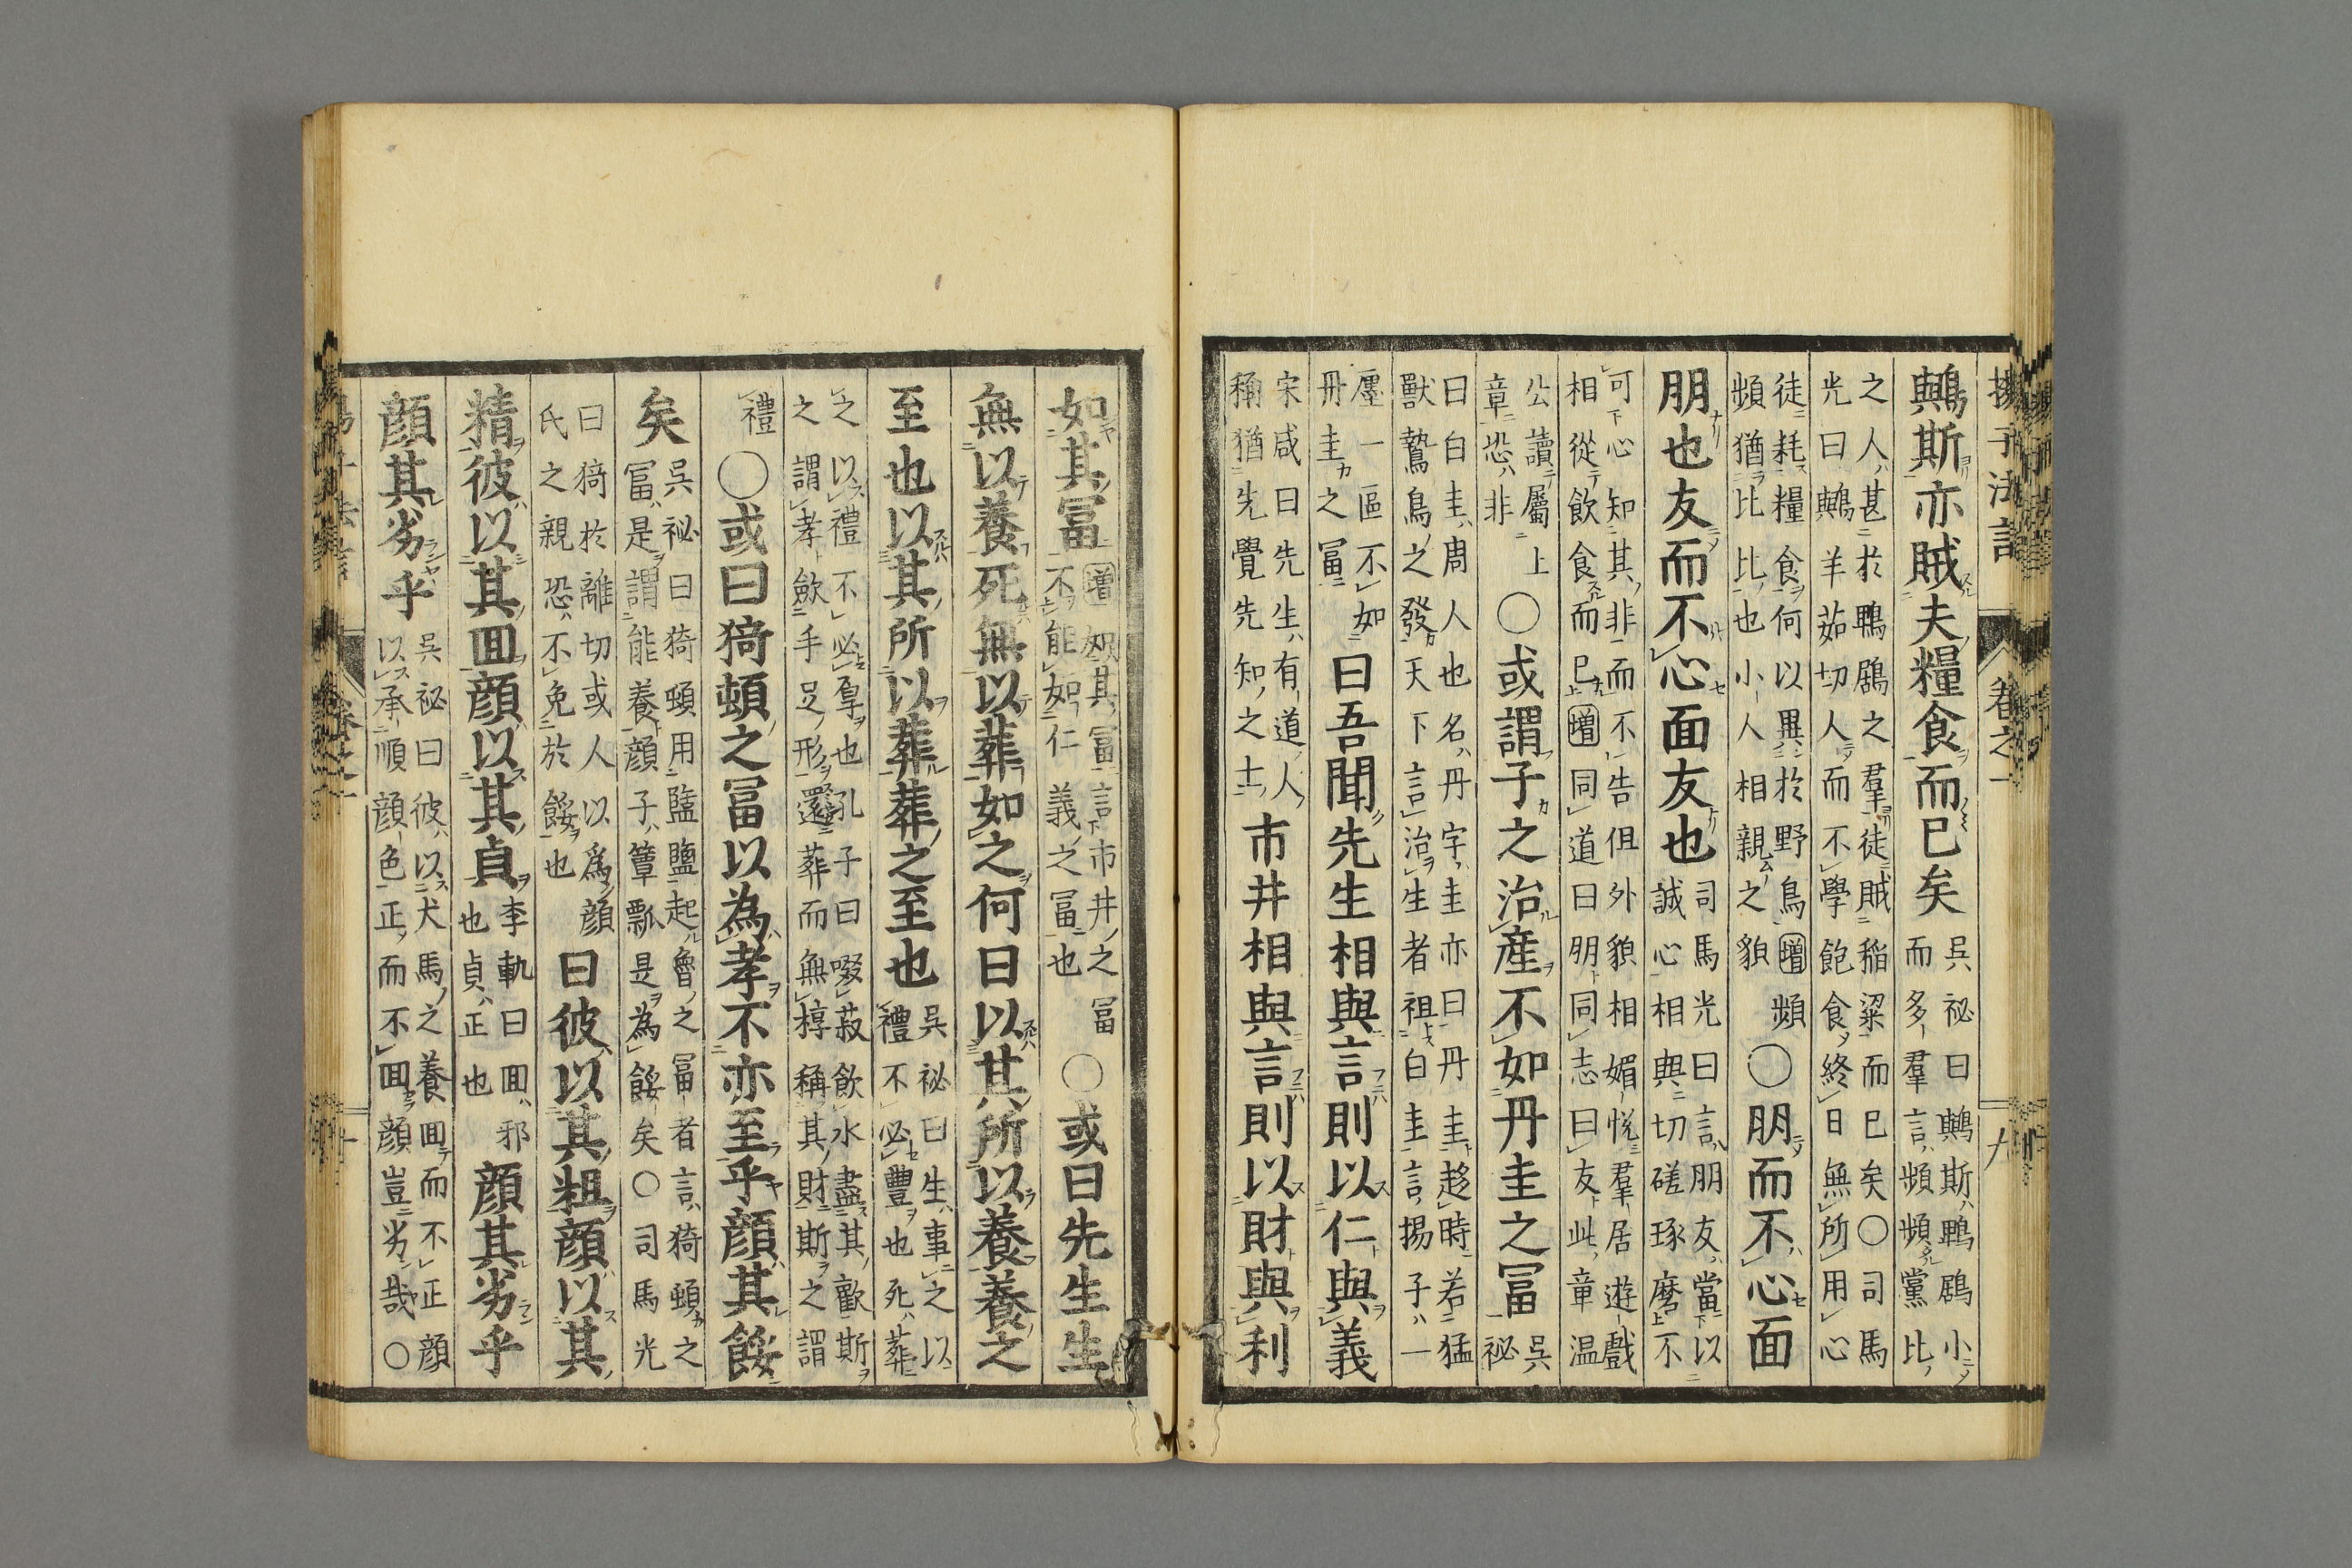 揚子法言 卷之一 九
鷡斯亦賊夫糧食而已矣
吳祕曰鷡斯鴨鶋小
而多羣言頻頻黨比
之人甚於鴨鶋之羣徒賊稲粱而已矣○司馬
光曰鷡羊茹切人而不學飽食終日無所用心
徒耗糧食何以異於野鳥增頻
頻猶比比也小人相親之貌
○朋而不心面
朋也友而不心面友也
司馬光曰言朋友當以
誠心相與切磋琢磨不
可心知其非而不告但外貌相媚悅羣居遊戲
相從飲食而已增同道曰朋同志曰友此章温
公讀屬上
章恐非
○或謂子之治產不如丹圭之冨
吳
祕
曰白圭周人也名丹字圭亦曰丹圭趍時若猛
獸鷙鳥之發天下言治生者祖白圭言揚子一
廛一區不如
丹圭之冨
曰吾聞先生相與言則以仁與義
宋咸曰先生有道人
稱猶先覺先知之士
市井相與言則以財與利
如其冨
增如其冨言市井之冨
不能如仁義之冨也
○或曰先生生
無以養死無以葬如之何曰以其所以養養之
至也以其所以葬葬之至也
吳祕曰生事之以
禮不必豐也死葬
之以禮不必厚也孔子曰啜菽飲水盡其歡斯
之謂孝歛手足形還葬而無椁稱其財斯之謂
禮
○或曰猗頓之冨以為孝不亦至乎顔其餒
矣
吳祕曰猗頓用盬鹽起魯之冨者言猗頓之
冨是謂能養顔子簞瓢是為餒矣○司馬光
曰猗於離切或人以爲顔
氏之親恐不免於餒也
曰彼以其粗顔以其
精彼以其囬顔以其貞
李軌曰囬邪
也貞正也
顔其劣乎
顔其劣乎
吳祕曰彼以犬馬之養囬而不正顔
以承順顔色正而不囬顔豈劣哉○